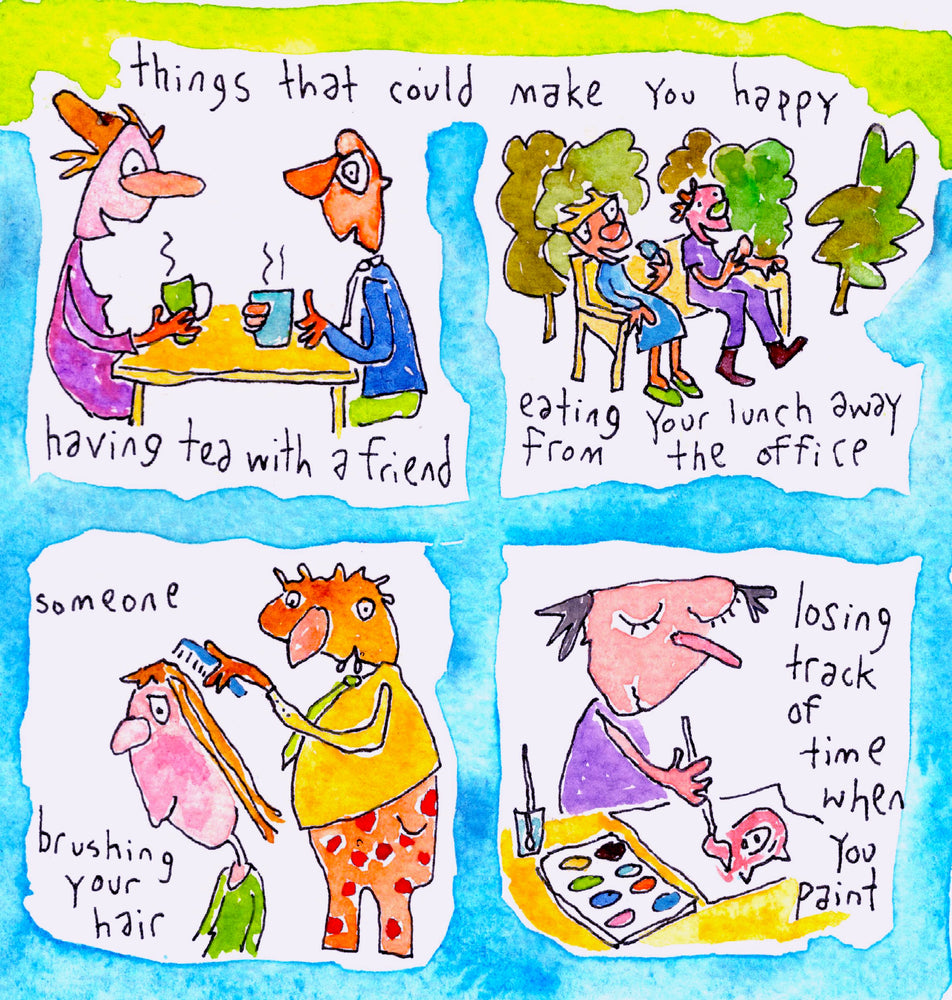 things that could make you happy
having tea with a friend
eating your lunch away
from the office
someone
brushing
your
hair
losing
track
of
time
when
you
paint